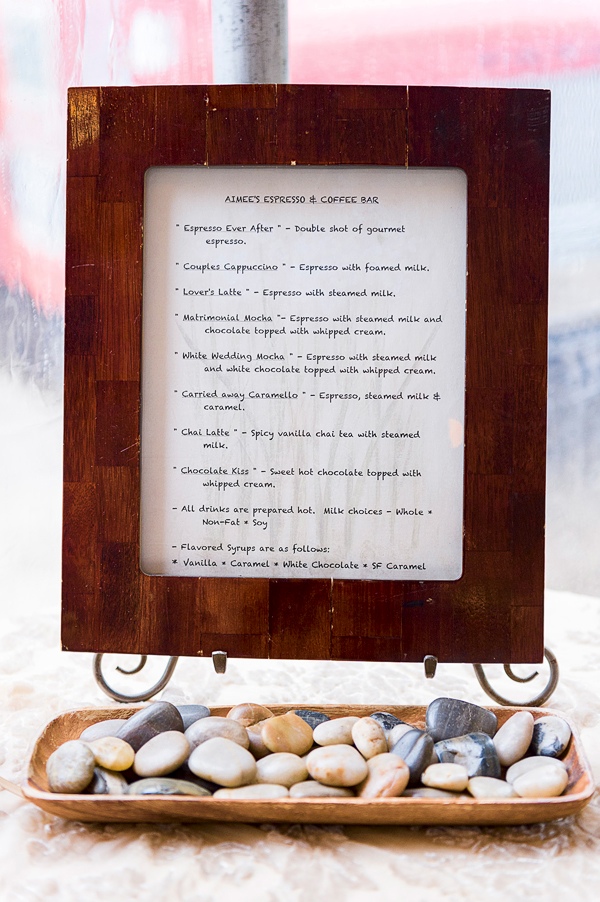 AIMEE'S ESPRESSO & COFFEE BAR
" Espresso Ever After " - Double shot of gourmet
espresso.
" Couples Cappuccino " - Espresso with foamed milk.
" Lover's Latte " - Espresso with steamed milk.
" Matrimonial Mocha "- Espresso with steamed milk and
chocolate topped with whipped cream.
" White Wedding Mocha " - Espresso with steamed milk
and white chocolate topped with whipped cream.
" Carried away Caramello " - Espresso, steamed milk &
caramel.
" Chai Latte " - Spicy vanilla chai tea with steamed
milk.
" Chocolate Kiss " - Sweet hot chocolate topped with
whipped cream.
- All drinks are prepared hot. Milk choices - Whole *
Non-Fat * Soy
- Flavored Syrups are as follows:
* Vanilla * Caramel * White Chocolate * SF Caramel